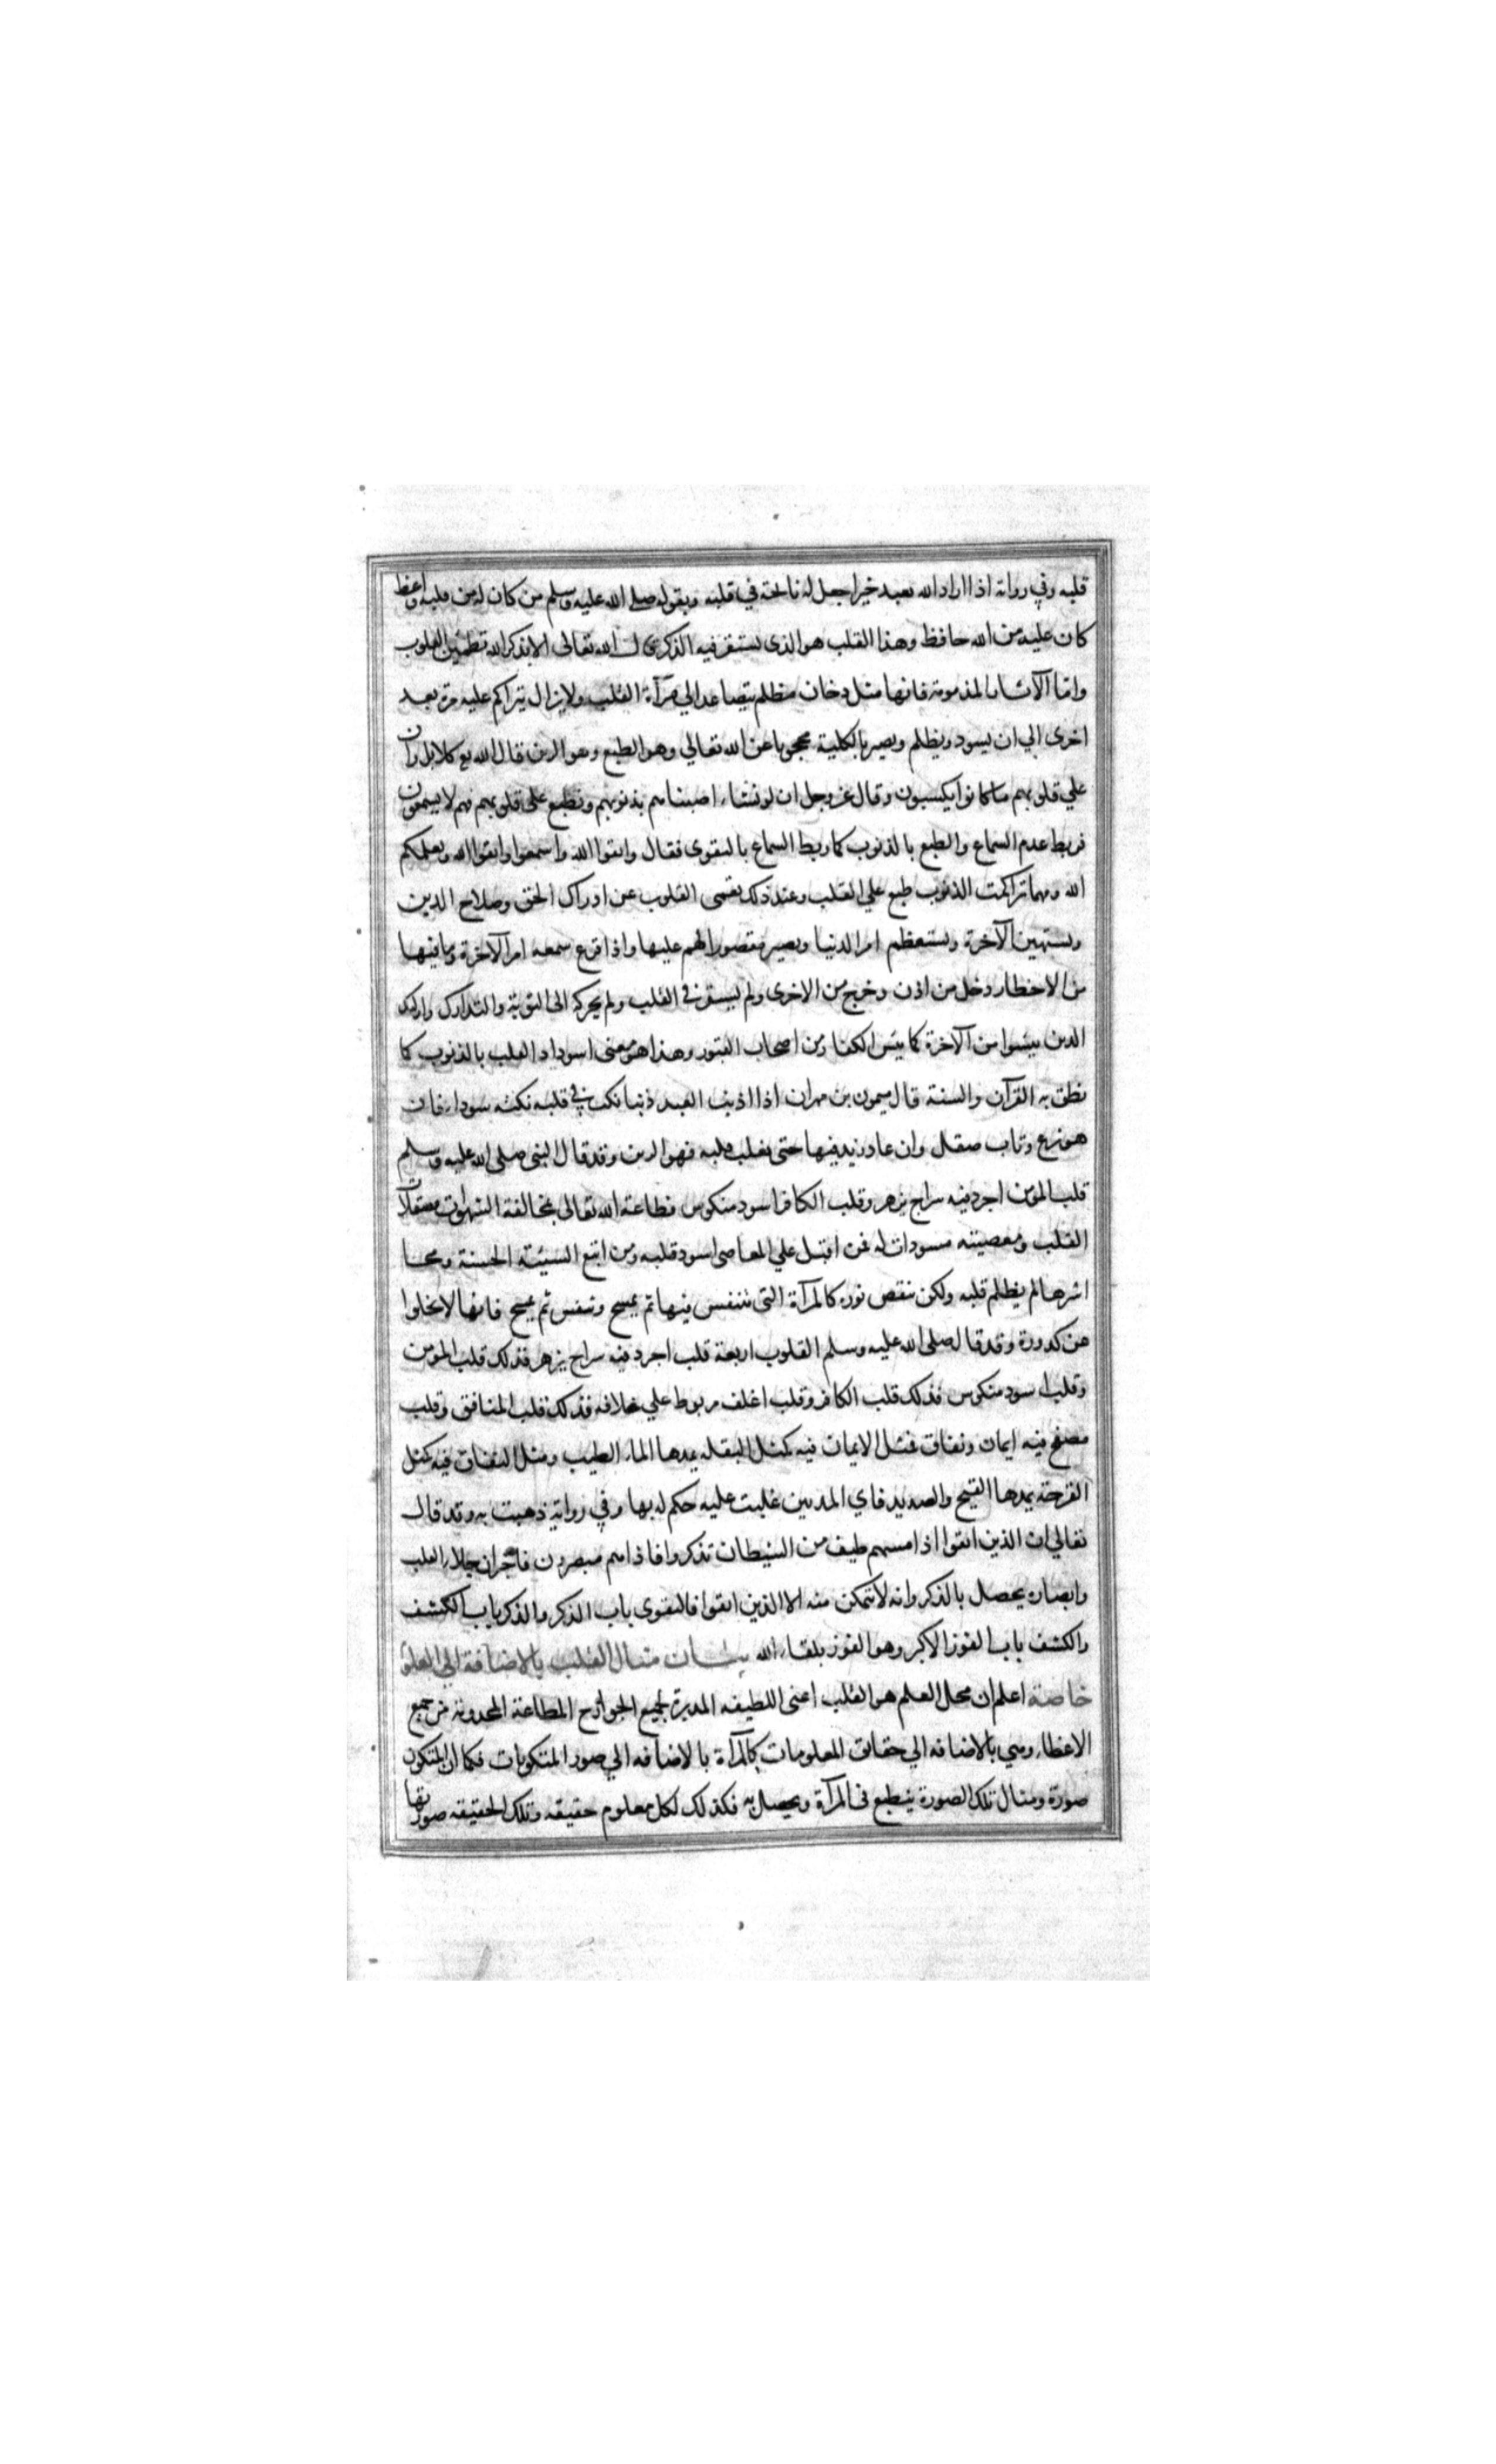 قلبه وفي رواية اذا اراد الله بعبد خيرا جعل له ناعظة في قلبه وبقوله صلى الله عليه وسلم من كان له من قلبه واعظ
كان عليه من الله حافظ وهذا القلب هو الذى يستقر فيه الذكرى قال الله تعالى الا بذكر الله تطمئن القلوب
واما الآثار المذمومة فانها مثل دخان مظلم يتصاعد الي مرآة القلب ولا يزال يتراكم عليه مرة بعد
اخرى الي ان يسود ويظلم ويصير بالكلية محجوبا عن الله تعالي وهو الطبع وهو الرين قال الله تع كلا بل ران
علي قلوبهم ما كانوا يكسبون وقال عز وجل ان لو نشاء اصبناهم بذنوبهم ونطبع على قلوبهم فهم لا يسمعون
فربط عدم السماع والطبع بالذنوب كما ربط السماع بالتقوى فقال واتقوا الله واسمعوا واتقوا الله ويعلمكم
الله ومهما تراكمت الذنوب طبع علي القلب وعند ذلك يعمى القلوب عن ادراك الحق وصلاح الدين
ويستهين الآخرة ويستعظم امر الدنيا ويصير مقصور الهم عليها واذا قرع سمعه امر الآخرة وما فيها
من الاخطار دخل من اذن وخرج من الاخرى ولم يستقر في القلب ولم يحركه الى التوبة والتدارك واولئك
الذين يئسوا من الآخرة كما يئس الكفار من اصحاب القبور وهذا هو معنى اسوداد القلب بالذنوب كما
نطق به القرآن والسنة قال ميمون بن مهران اذا اذنب العبد ذنبا نكت في قلبه نكتة سوداء فان
هو نزع وتاب صقل وان عاد زيد فيها حتى يغلب قلبه فهو الرين وقد قال النبي صلى الله عليه وسلم
قلب المؤمن اجرد فيه سراج يزهر وقلب الكافر اسود منكوس فطاعة الله تعالى بمخالفة الشهوات مصقلات
القلب ومعصيته مسودات له فمن اقبل علي المعاصى اسود قلبه ومن اتبع السيئة الحسنة ومحا
اثرها لم يظلم قلبه ولكن ينقص نوره كالمرآة التى يتنفس فيها ثم يمسح وتنفس ثم يمسح فانها لا تخلوا
عن كدورة وقد قال صلى الله عليه وسلم القلوب اربعة قلب اجرد فيه سراج يزهر فذلك قلب المؤمن
وقلب اسود منكوس فذلك قلب الكافر وقلب اغلف مربوط علي غلافه فذلك قلب المنافق وقلب
مصفح فيه ايمان ونفاق فمثل الايمان فيه كمثل البقله يمدها الماء الطيب ومثل النفاق فيه كمثل
القرحة يمدها القيح والصديد فاي المدتين غلبت عليه حكم له بها وفي رواية ذهبت به وقد قال
تعالي ان الذين اتقوا اذا مسهم طيف من الشيطان تذكروا فاذا هم مبصرون فاخبر ان جلاء القلب
وابصاره يحصل بالذكر وانه لا يتمكن منه الا الذين اتقوا فالتقوى باب الذكر والذكر باب الكشف
والكشف باب الفوز الاكبر وهو الفوز بلقاء الله بيان مثال القلب بالاضافة الي العلوم
خاصة اعلم ان محل العلم هو القلب اعنى اللطيفه المدبرة لجميع الجوارح المطاعة المخدومة من جميع
الاعضاء وهي بالاضافه الي حقائق المعلومات كالمرآة بالاضافه الي صور المتكونات فكما ان للمتكون
صورة ومثال تلك الصورة ينطبع في المرآة ويحصل به فكذلك لكل معلوم حقيقه وتلك الحقيقه صورتها